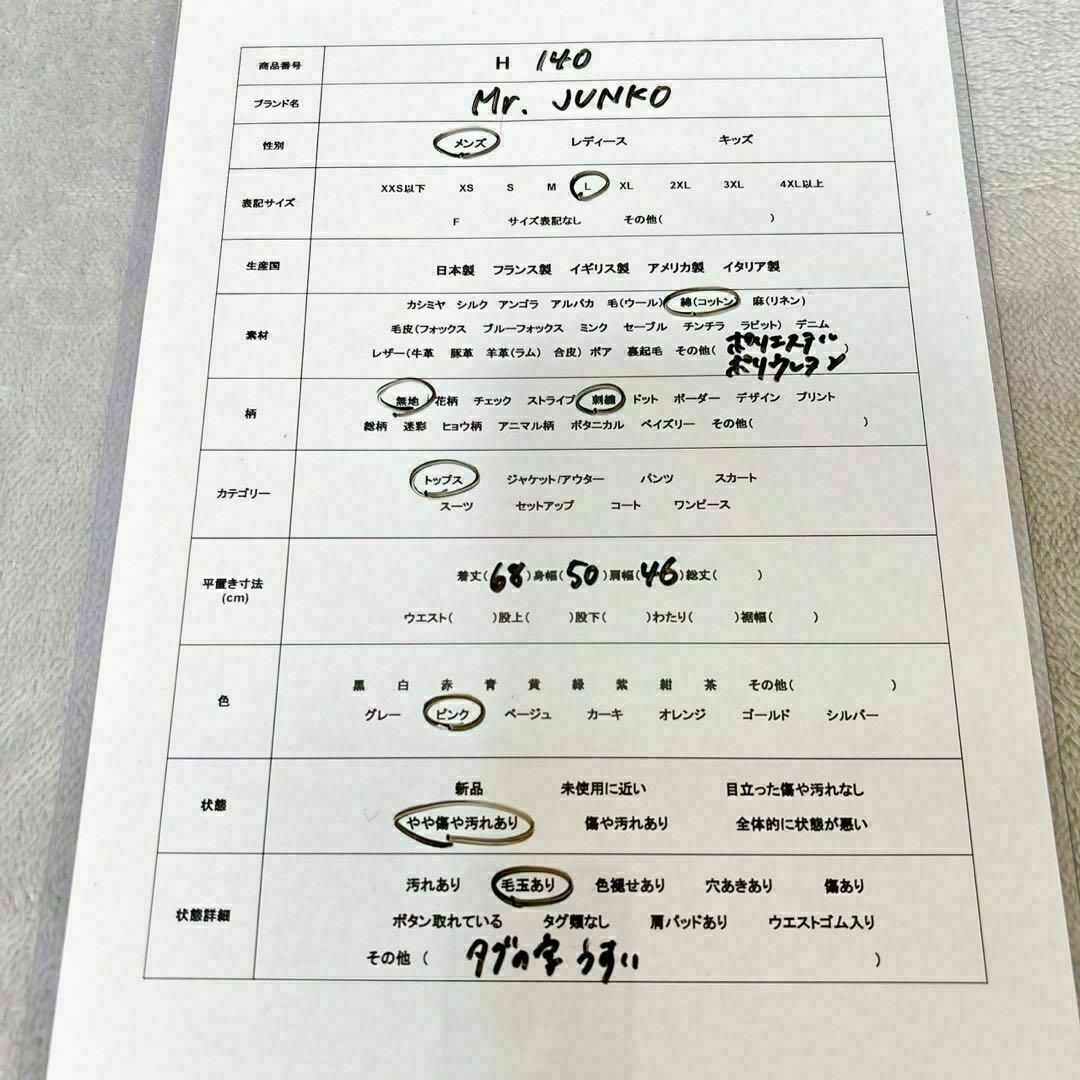 商品番号 H 140
ブランド名 Mr. JUNKO
性別 メンズ レディース キッズ
XXS以下 XS S M L XL 2XL 3XL 4XL以上
表記サイズ
F サイズ表記なし その他( )
生産国 日本製 フランス製 イギリス製 アメリカ製 イタリア製
カシミヤ シルク アンゴラ アルパカ 毛(ウール) 綿(コットン) 麻(リネン)
素材
毛皮(フォックス ブルーフォックス ミンク セーブル チンチラ ラビット) デニム
レザー(牛革 豚革 羊革(ラム) 合皮) ボア 裏起毛 その他( ポリエステル )
ポリウレタン
柄
無地 花柄 チェック ストライプ 刺繍 ドット ボーダー デザイン プリント
総柄 迷彩 ヒョウ柄 アニマル柄 ボタニカル ペイズリー その他( )
カテゴリー
トップス ジャケット/アウター パンツ スカート
スーツ セットアップ コート ワンピース
平置き寸法
(cm)
着丈(68)身幅(50)肩幅(46)総丈( )
ウエスト( )股上( )股下( )わたり( )裾幅( )
色
黒 白 赤 青 黄 緑 紫 紺 茶 その他( )
グレー ピンク ベージュ カーキ オレンジ ゴールド シルバー
状態
新品 未使用に近い 目立った傷や汚れなし
やや傷や汚れあり 傷や汚れあり 全体的に状態が悪い
状態詳細
汚れあり 毛玉あり 色褪せあり 穴あきあり 傷あり
ボタン取れている タグ類なし 肩パッドあり ウエストゴム入り
その他( タグの字 うすい )